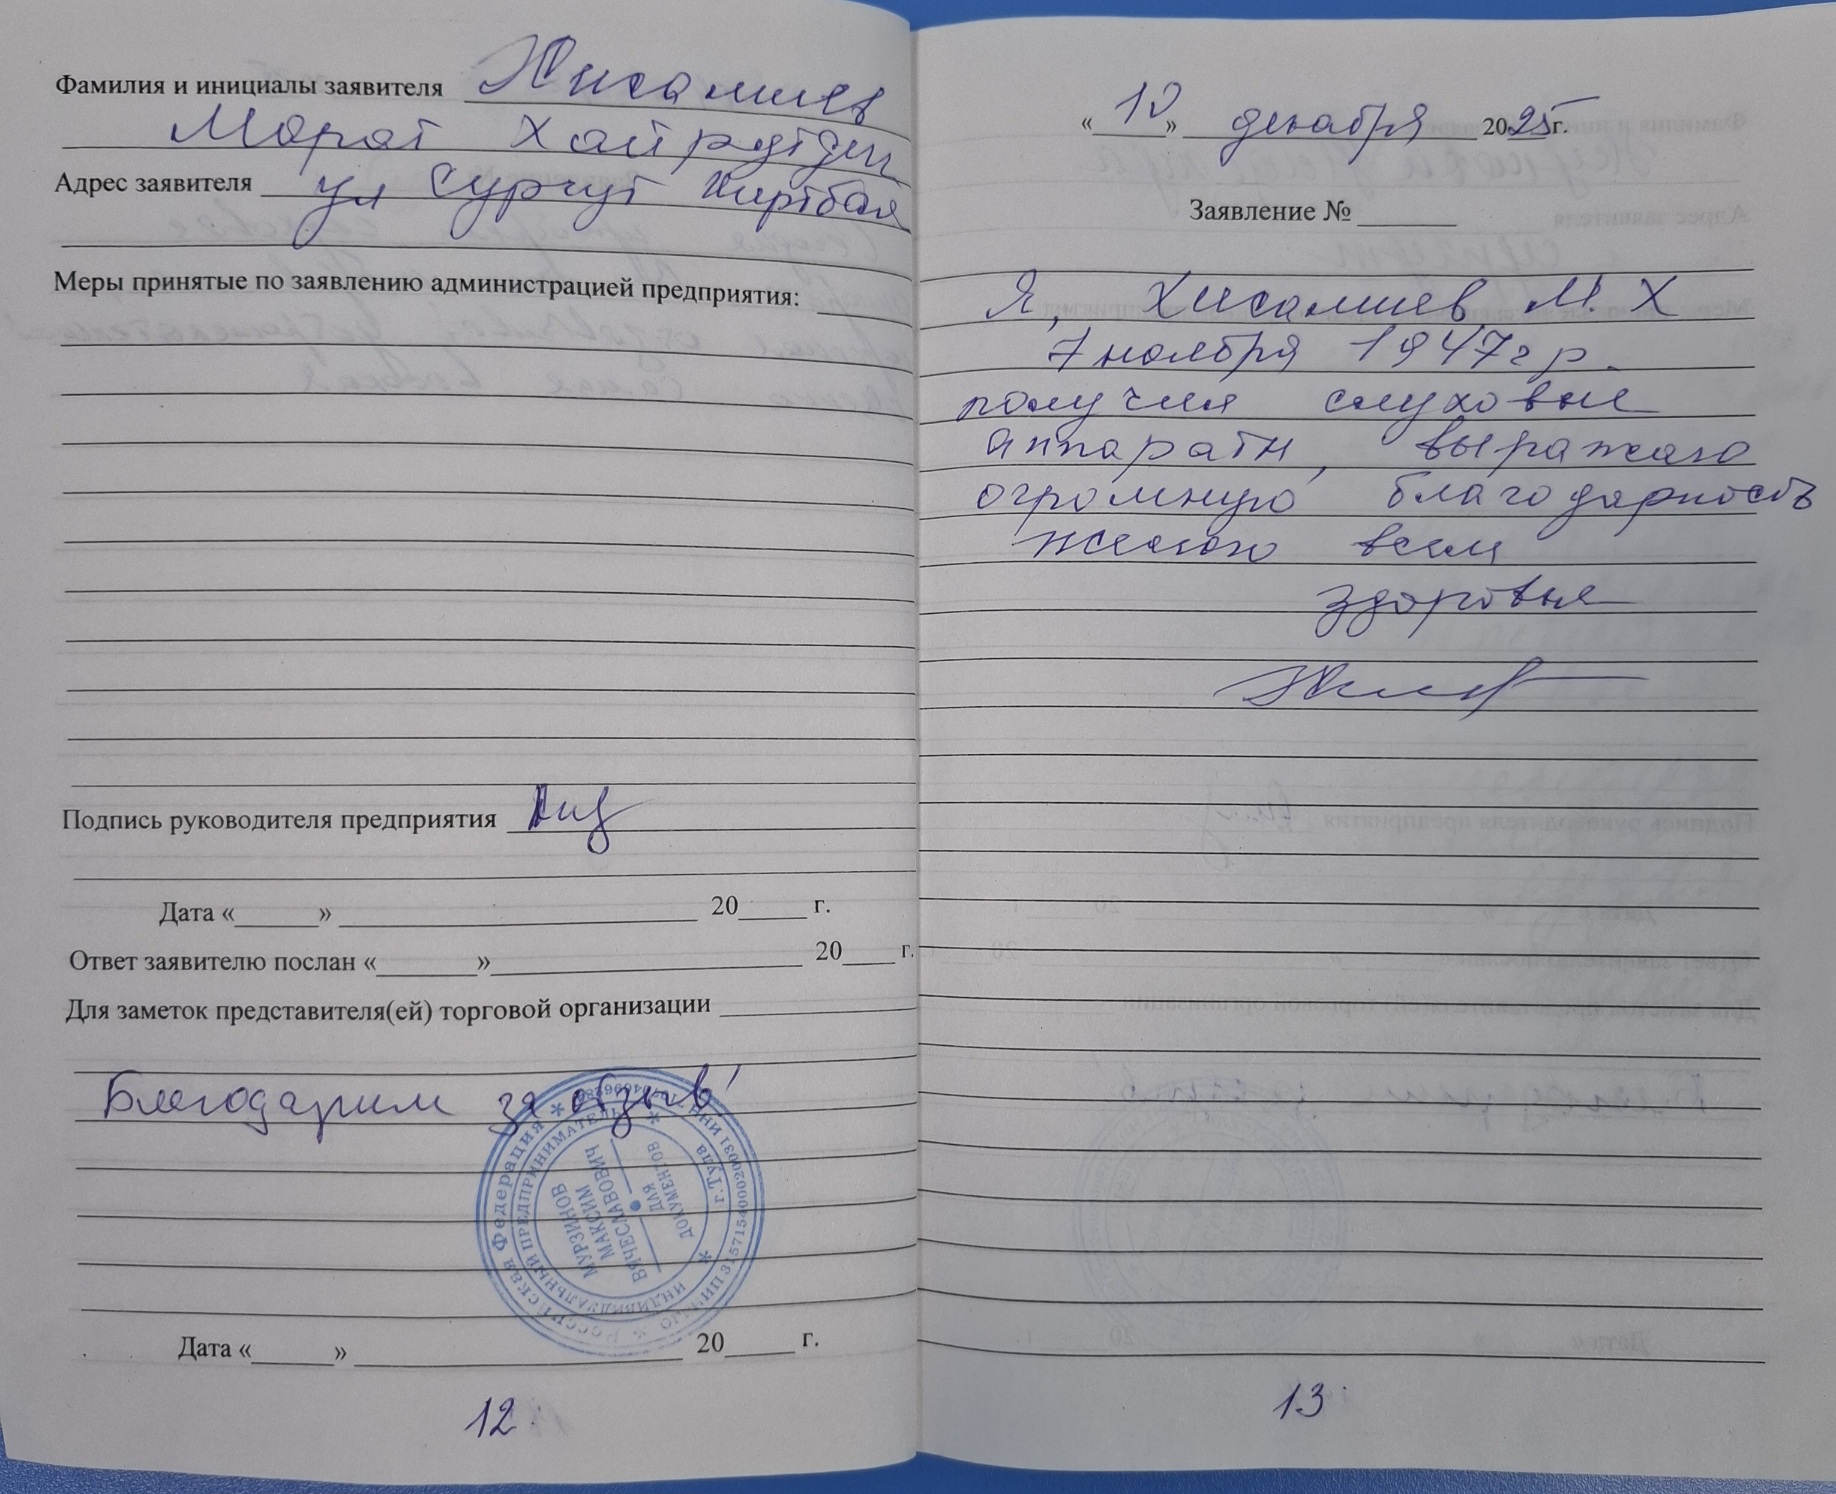 Фамилия и инициалы заявителя Хисамиев
Марат Хайрутдин
Адрес заявителя ул Сургут
Меры принятые по заявлению администрацией предприятия:
Подпись руководителя предприятия
Дата «______» 20_____ г.
Ответ заявителю послан «_______» 20____ г.
Для заметок представителя(ей) торговой организации
Благодарим за отзыв!
Российская Федерация
ИНДИВИДУАЛЬНЫЙ ПРЕДПРИНИМАТЕЛЬ
г. Тула
МУРЗИНОВ
МАКСИМ
ВЯЧЕСЛАВОВИЧ
ДЛЯ
ДОКУМЕНТОВ
Дата «______» 20_____ г.
12
«10» декабря 2025г.
Заявление №
Я, Хисамиев М. Х
7 ноября 1947г р.
получил слуховые
аппараты, выражаю
огромную благодарность
желаю всем
здоровье
13